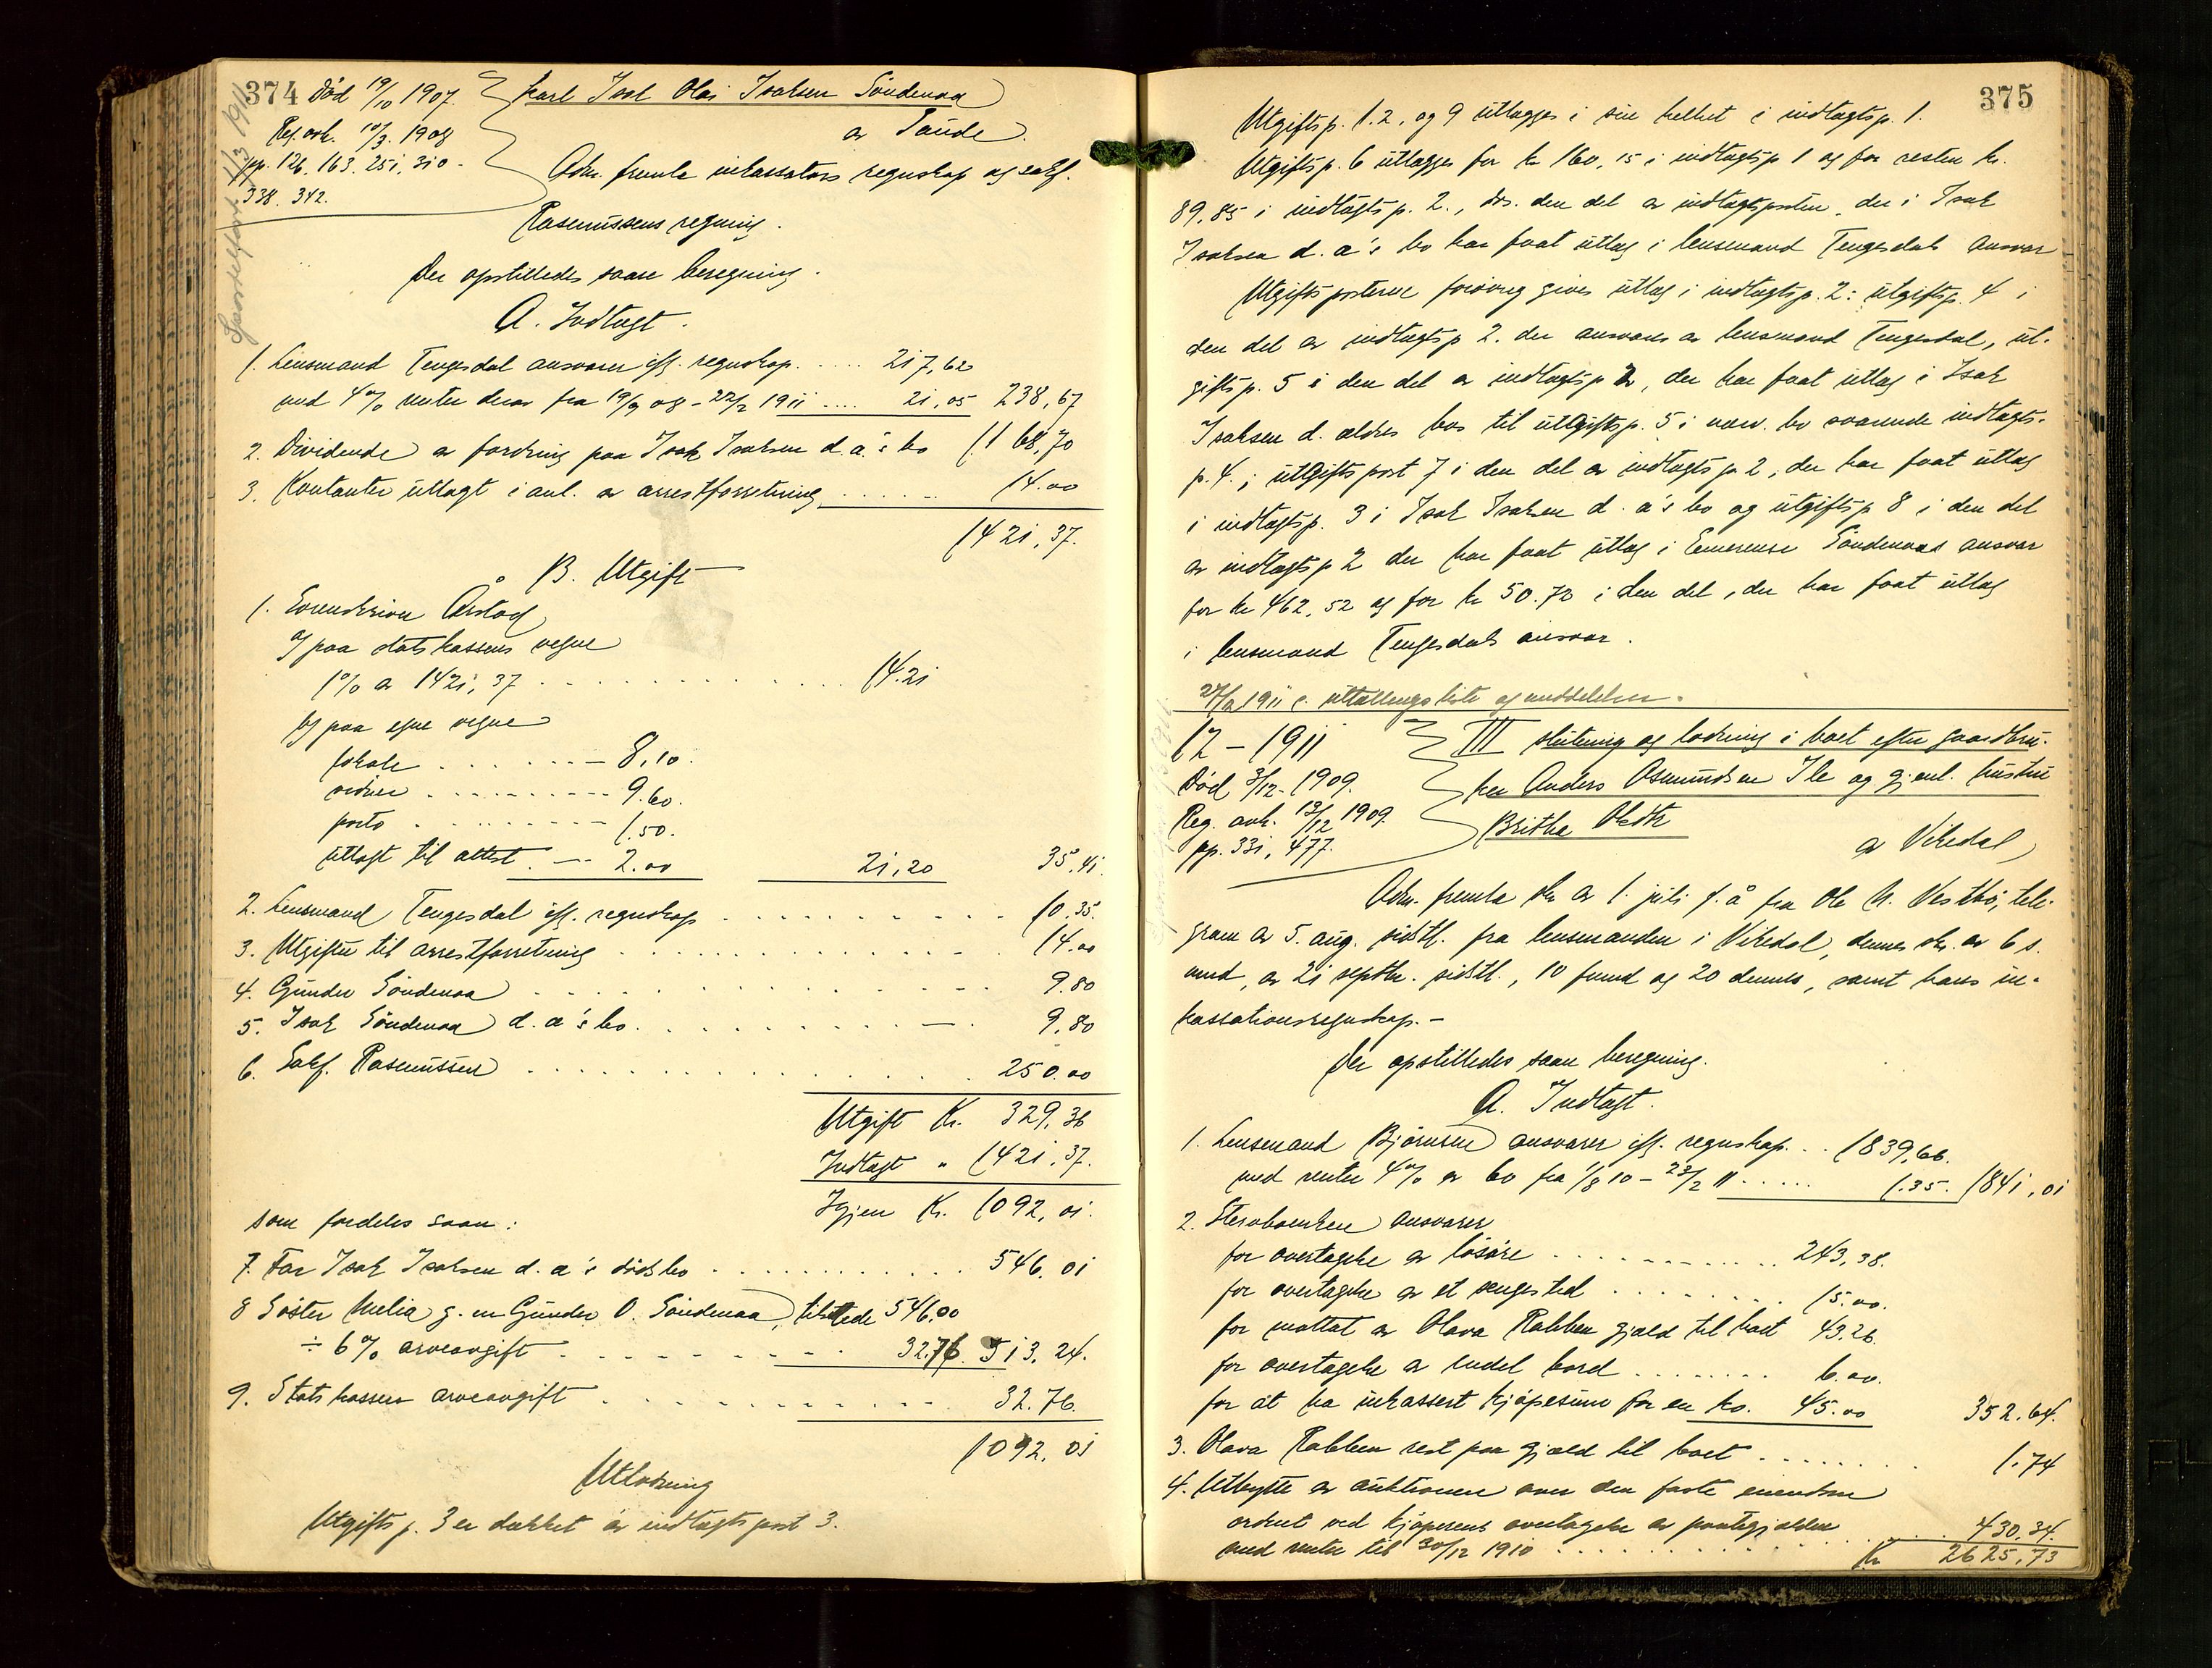 374 Död 19/10 1907. Karl Isak Olai Isaksen Söndenaa
Reg. avh. 10/3. 1908 av Saude.
pp. 126. 163. 251. 310. Adm. fremla inkassators regnskap og sakf.
338. 342. Rasmussens regning.
Der opstilledes saan beregning.
A. Indtægt.
1. Lensmand Tengesdal ansvarer ifl. regnskap. .... 217,62
med 4% renter derav fra 19/9 08 - 22/2 1911 .... 21,05 238,67
2. Dividende av fordring paa Isak Isaksen d. æ's bo 1168,70
3. Kontanter utlagt i anl. av arrestforretning ...... 14.00
1421,37.
B. Utgift
1. Sorenskriver Aarstad
a) paa statskassens vegne
1% av 1421,37 ............ 14.21
b) paa egne vegne
lokale ...... 8,10.
vidner ......... 9.60.
porto ......... 1.50.
utlagt til attest. ... 2.00 21,20 35,41.
2. Lensmand Tengesdal ifl. regnskap .......... 10.35.
3. Utgifter til arrestforretning ............. 14.00
4. Gunder Söndenaa ............. 9.80
5. Isak Söndenaa d. æ's bo ............ 9.80
6. Sakf. Rasmussen ............... 250.00
Utgift Kr. 329,36
Indtægt " 1421,37.
Igjen Kr. 1092,01.
som fordeles saan:
7. Far Isak Isaksen d. æ's dödsbo ........... 546.01
8 Söster Melia g. m Gunder O. Söndenaa, tilstede 546.00
÷ 6% arveavgift ......... 32.76. 513.24.
9. Statskassen arveavgift ............ 32.76.
1092,01
Utlodning
Utgiftsp. 3 er dækket av indtægtspost 3.
375
Utgiftsp. 1.2, og 9 utlægges i sin helhet i indtægtsp. 1.
Utgiftsp. 6 utlægges for kr 160,15 i indtægtsp 1 og for resten kr.
89,85 i indtægtsp. 2., dvs. den del av indtægtsposten, der i Isak
Isaksen d. æ's bo har faat utlæg i lensmand Tengesdals ansvar
Utgiftsposterne forövrig gives utlæg i indtægtsp. 2: utgiftsp. 4 i
den del av indtægtsp 2. der ansvares av lensmand Tengesdal, ut-
giftsp. 5 i den del av indtægtsp 2, der har faat utlæg i Isak
Isaksen d. ældres bos til utgiftsp. 5 i nærv. bo svarende indtægts-
p. 4.; utgiftspost 7 i den del av indtægtsp 2, der har faat utlæg
i indtægtsp. 3 i Isak Isaksen d. æ's bo og utgiftsp 8 i den del
av indtægtsp 2 der har faat utlæg i Emerense Söndenaas ansvar
for kr 462,52 og for kr 50.72 i den del, der har faat utlæg
i lensmand Tengesdals ansvar.
27/2 1911 e. uttællingsliste og meddelelser.
12 - 1911 III slutning og lodning i boet efter gaardbru-
Död 3/12 - 1909. ker Anders Osmundsen Ile og gjenl. hustru
Reg. avh. 13/12 1909. Britha Olsdtr
pp. 331, 477. av Vikedal
Adm. fremla skr av 1. juli f. å fra Ole N. Vestbö, tele-
gram av 5. aug. sidstl. fra lensmanden i Vikedal, dennes skr. av 6 s.
mnd, av 21 septbr. sidstl., 10 ds. og 20 dennes, samt hans in-
kassationsregnskap. -
Der opstilledes saan beregning.
A. Indtægt.
1. Lensmand Björnsen ansvarer ifl. regnskap... 1839,66.
med renter 4% av 60 fra 1/8 10 - 23/2 11 ...... 1.35. 1841,01
2. Stervboenken ansvarer
for overtagelse av lösöre ........... 243,38.
for overtagelse av et sengested ......... 15.00.
for mottat av Olava Rabben gjæld til boet 43.26.
for overtagelse av endel bord ........ 6.00.
for at ha inkassert kjöpesum for en ko. 45.00 352.64.
3. Olava Rabben rest paa gjæld til boet ........ 1.74
4. Utbytte av auktionen over den faste eiendom
ordnet ved kjöperens overtagelse av pantegjælden
med renter til 30/12 1910 ............ 430,34.
Kr 2625,73